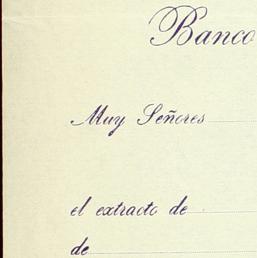 Banco
Muy Señores
el extracto de
de